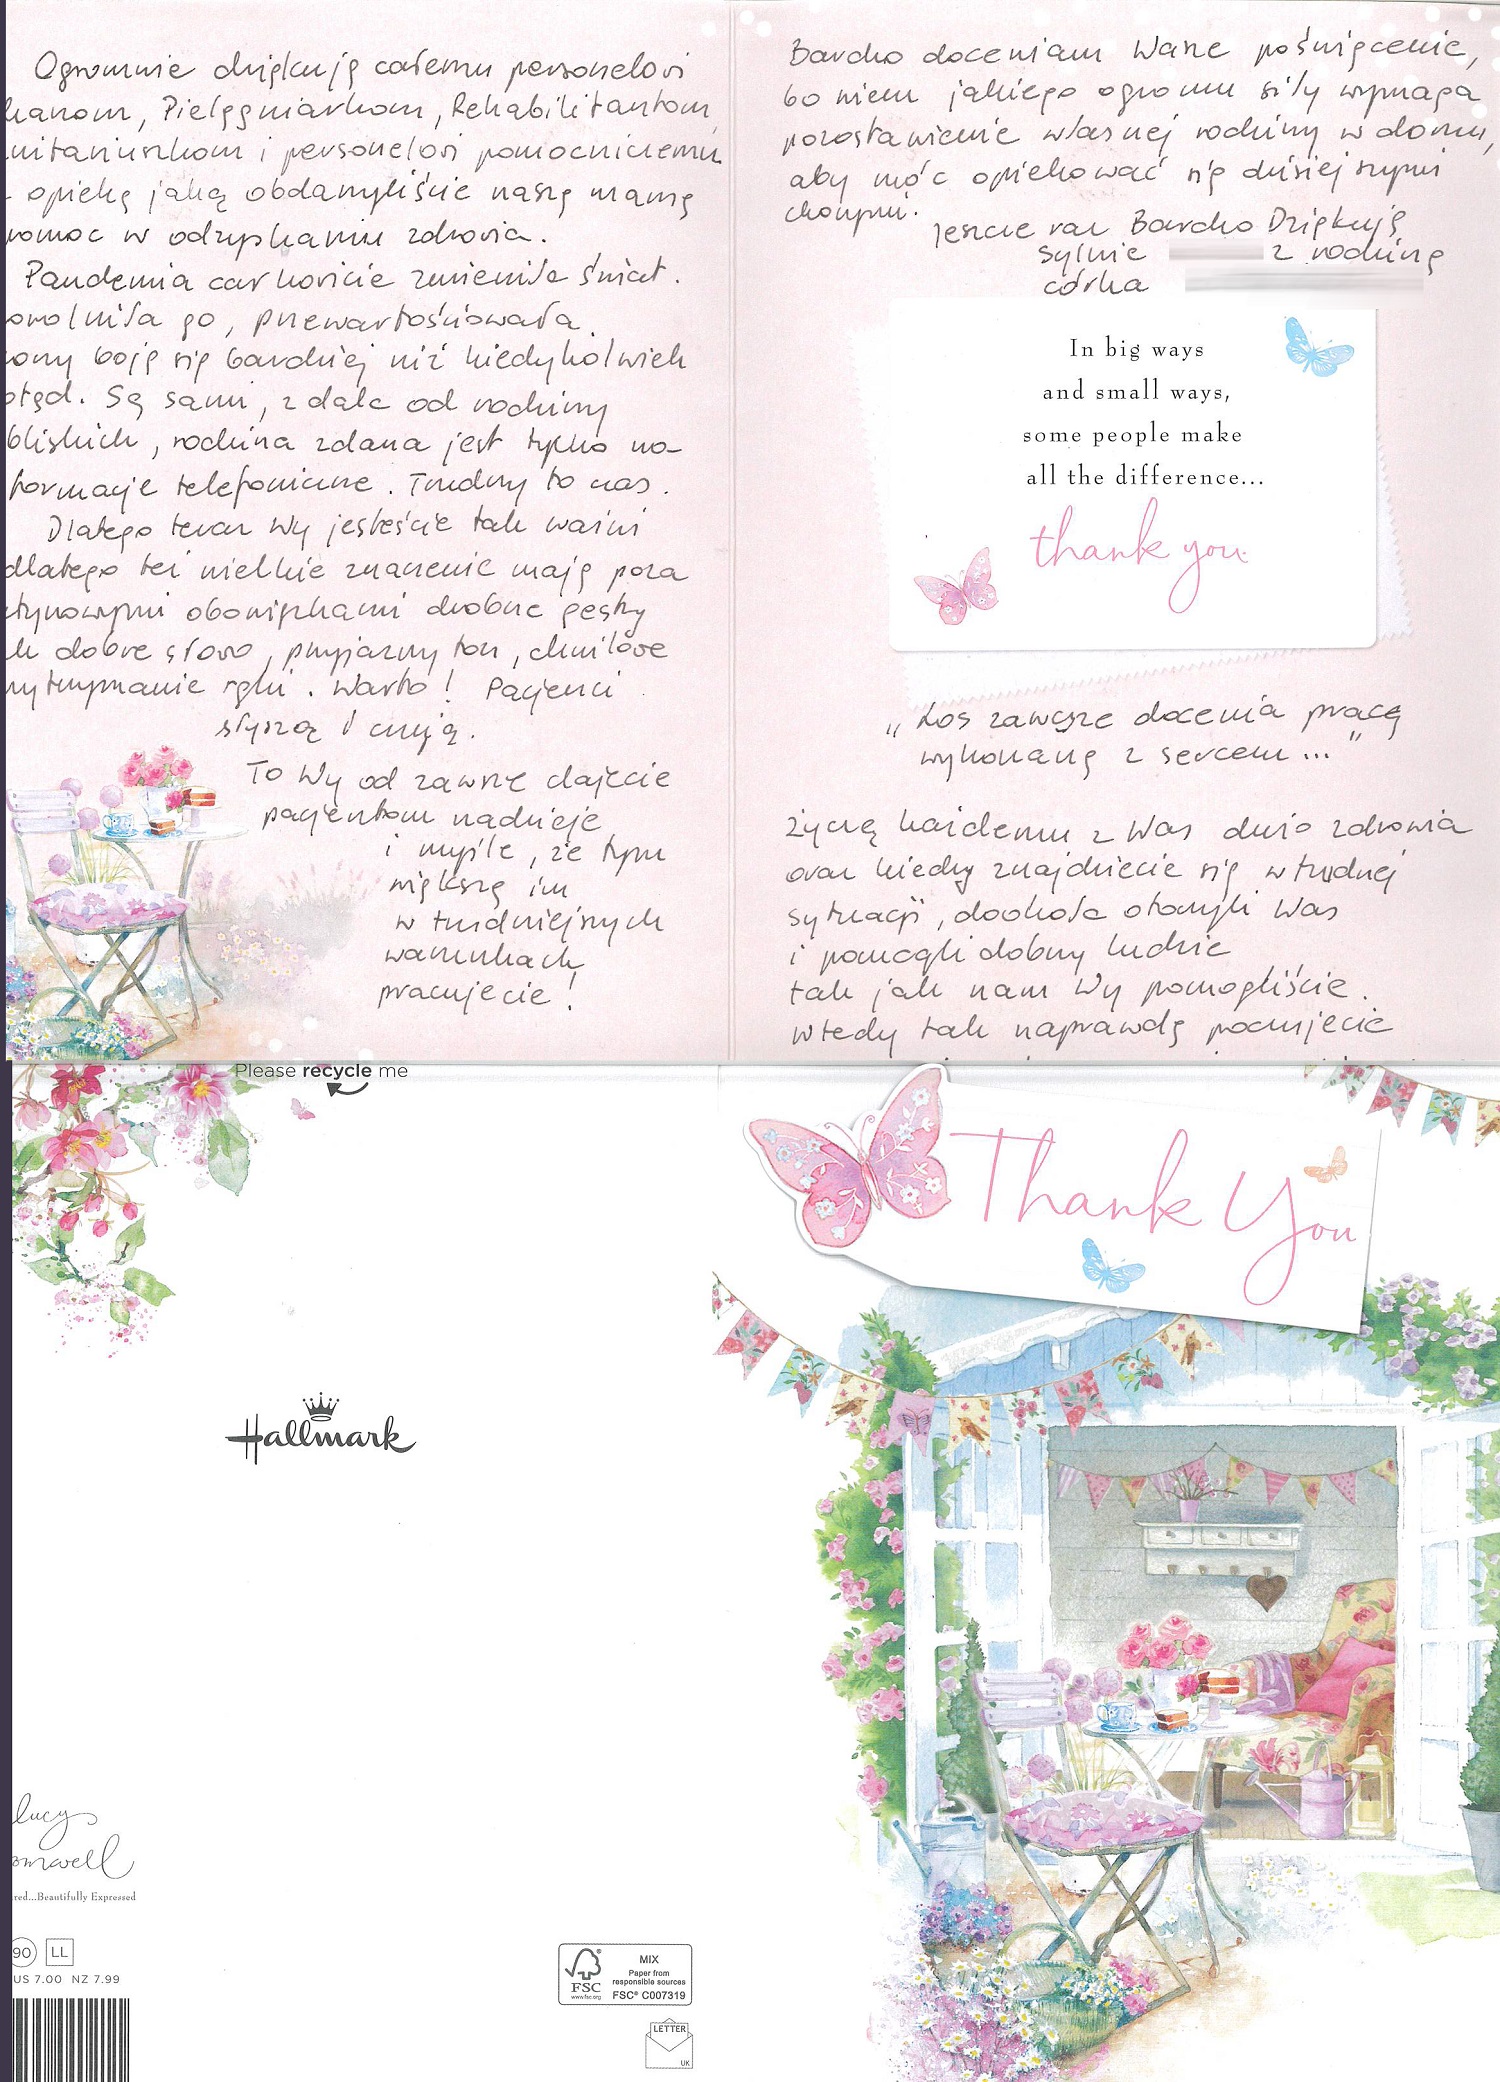 Ogromnie dziękuję całemu personelowi
karzom, Pielęgniarkom, Rehabilitantom,
nitariuszkom i personelowi pomocniczemu
opiekę jaką obdarzyliście naszą mamę
pomoc w odzyskaniu zdrowia.
Pandemia całkowicie zmieniła świat.
owolniła go, przewartościowała.
boją się bardziej niż kiedykolwiek
otąd. Są sami, z dala od rodziny
bliskich, rodzina zdana jest tylko na
formacje telefoniczne. Trudny to czas.
Dlatego teraz Wy jesteście tak ważni
dlatego też wielkie znaczenie mają poza
utynowymi obowiązkami drobne gesty
ak dobre słowo, przyjazny ton, chwilowe
rzytrzymanie ręki. Warto! Pacjenci
słyszą i czują.
To Wy od zawsze dajecie
pacjentom nadzieję
i myślę, że tym
większą im
w trudniejszych
warunkach
pracujecie!
Bardzo doceniam Wasze poświęcenie,
bo wiem jakiego ogromu siły wymaga
pozostawienie własnej rodziny w domu,
aby móc opiekować się dzisiejszymi
chorymi.
Jeszcze raz Bardzo Dziękuję
Sylwie z rodziną
córka
In big ways
and small ways,
some people make
all the difference...
thank you
„Los zawsze docenia pracę
wykonaną z sercem..."
Życzę każdemu z Was dużo zdrowia
oraz kiedy znajdziecie się w trudnej
sytuacji, dookoła otoczyli Was
i pomogli dobrzy ludzie
tak jak nam Wy pomogliście.
Wtedy tak naprawdę poczujecie
Please recycle me
Thank You
Hallmark
lucy
omwell
red...Beautifully Expressed
90 LL
US 7.00 NZ 7.99
FSC
www.fsc.org
MIX
Paper from
responsible sources
FSC® C007319
LETTER
UK